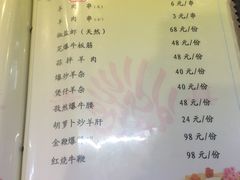 羊肉串(大) 6元/串
羊肉串(小) 3元/串
椒盐虾(天然) 68元/份
花爆牛板筋 48元/份
蒜拌羊肉 48元/份
爆炒羊杂 40元/份
煲仔羊杂 40元/份
孜然爆牛腰 48元/份
胡萝卜炒羊肝 24元/份
金鞭爆 98元/份
红烧牛鞭 98元/份